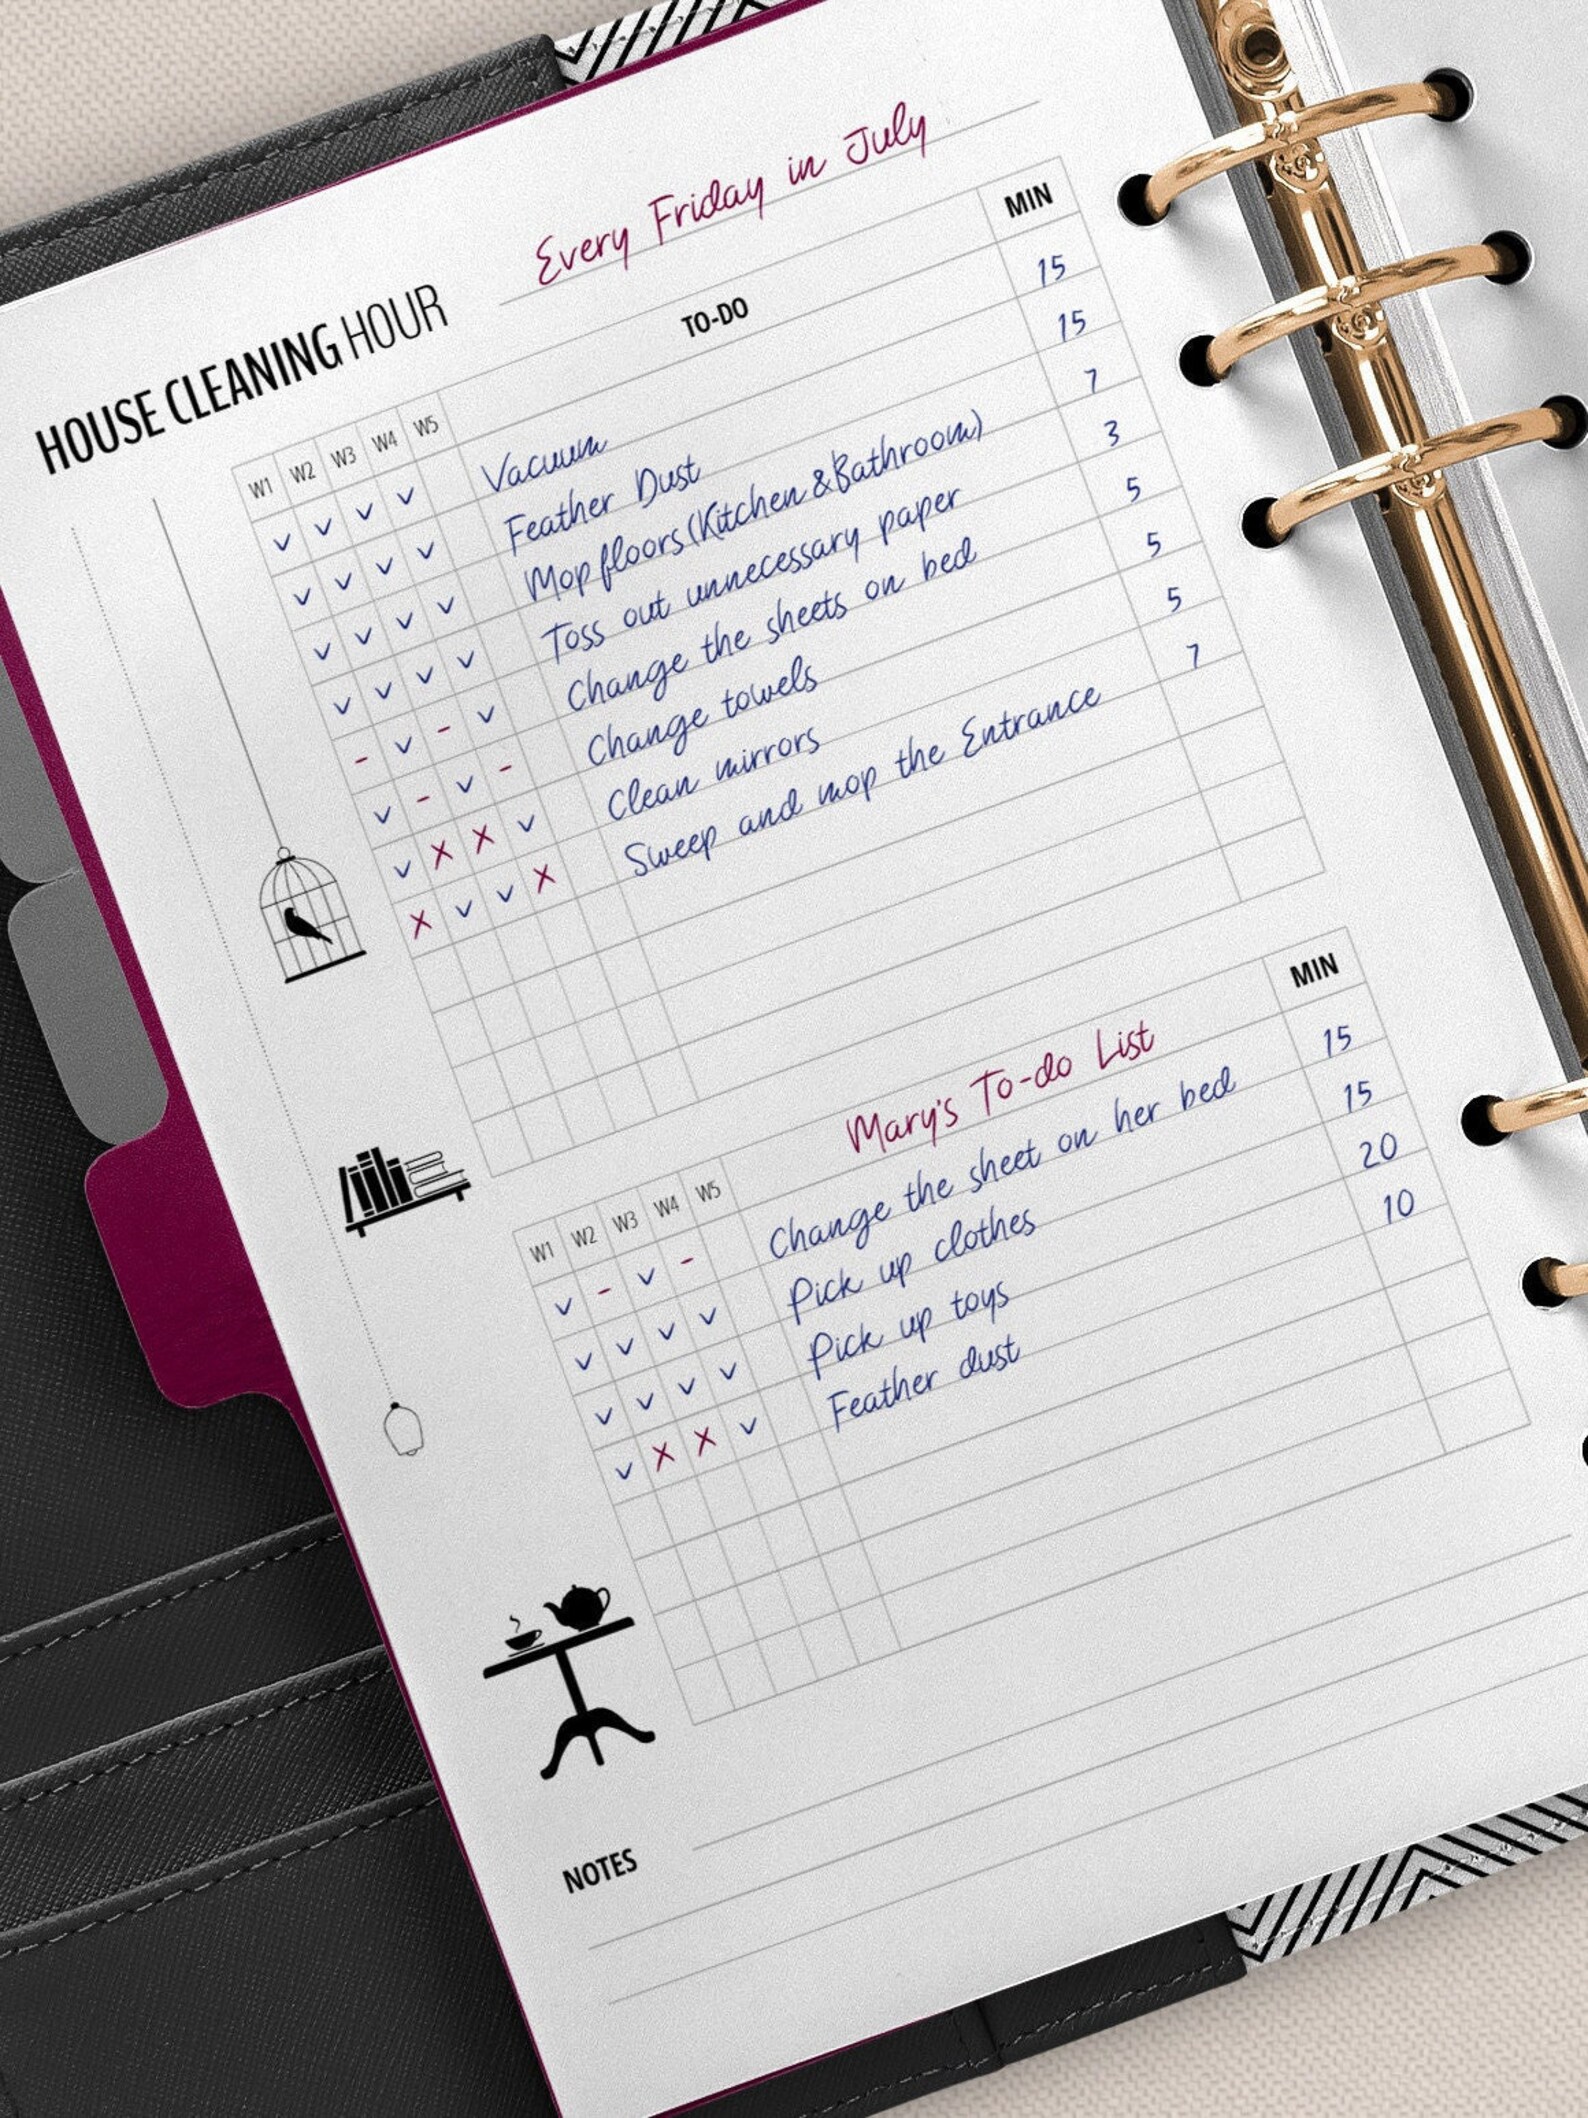 HOUSE CLEANING HOUR Every Friday in July
W1 W2 W3 W4 W5 TO-DO MIN
v v v v Vacuum 15
v v v v Feather Dust 15
v v v v Mop floors (Kitchen & Bathroom) 7
v v v v Toss out unnecessary paper 3
- v - v Change the sheets on bed 5
v - v - Change towels 5
v X X v Clean mirrors 5
X v v X Sweep and mop the Entrance 7
W1 W2 W3 W4 W5 Mary's To-do List MIN
v - v - Change the sheet on her bed 15
v v v v Pick up clothes 15
v v v v Pick up toys 20
v X X v Feather dust 10
NOTES